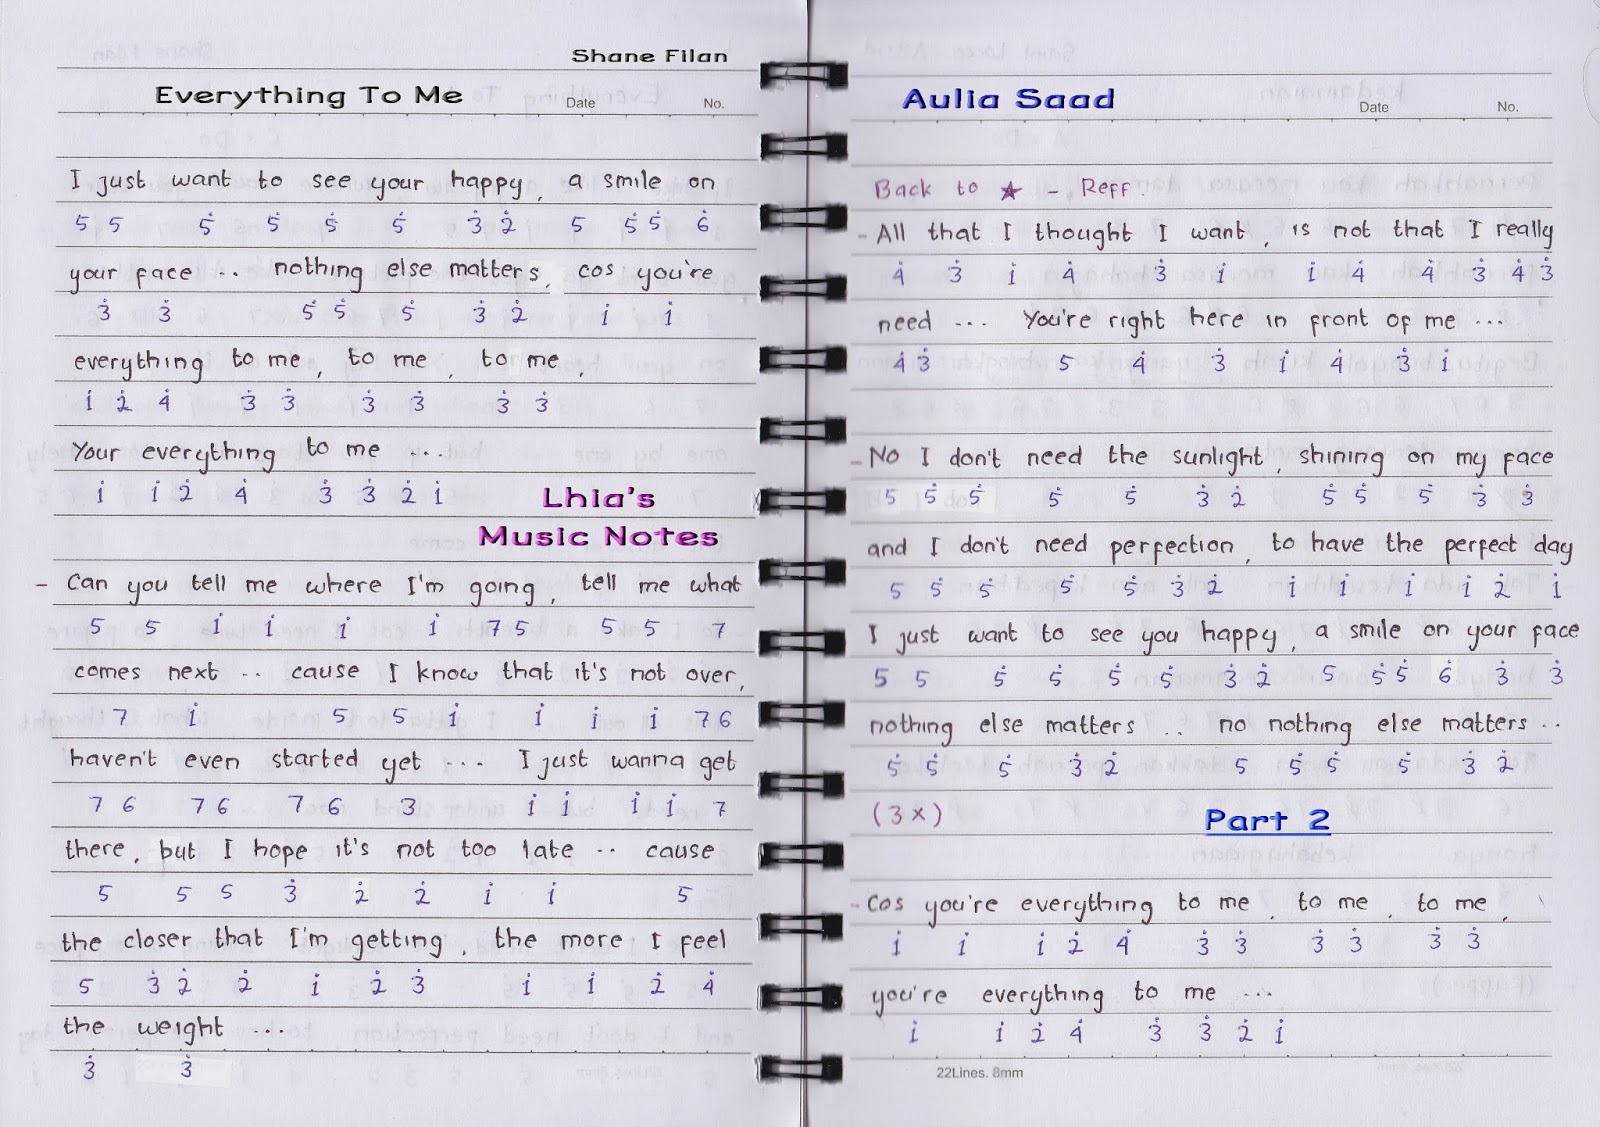 Shane Filan
Everything To Me
Date No.
I just want to see your happy, a smile on
5 5 5̇ 5̇ 5̇ 5̇ 3̇ 2̇ 5 5̇ 5̇ 6̇
your face .. nothing else matters, cos you're
3̇ 3̇ 5̇ 5̇ 5̇ 3̇ 2̇ 1̇ 1̇
everything to me, to me, to me,
1̇ 2̇ 4̇ 3̇ 3̇ 3̇ 3̇ 3̇ 3̇
Your everything to me ...
1̇ 1̇ 2̇ 4̇ 3̇ 3̇ 2̇ 1̇
Lhia's
Music Notes
- Can you tell me where I'm going, tell me what
5 5 1̇ 1̇ 1̇ 1̇ 7 5 5 5 7
comes next .. cause I know that it's not over,
7 1̇ 5 5 1̇ 1̇ 1̇ 1̇ 7 6
haven't even started yet ... I just wanna get
7 6 7 6 7 6 3 1̇ 1̇ 1̇ 1̇ 7
there, but I hope it's not too late .. cause
5 5 5 3̇ 2̇ 2̇ 1̇ 1̇ 5
the closer that I'm getting, the more I feel
5 3̇ 2̇ 2̇ 1̇ 2̇ 3̇ 1̇ 1̇ 2̇ 4̇
the weight ...
3̇ 3̇
Aulia Saad
Date No.
Back to ★ -, Reff.
- All that I thought I want, is not that I really
4̇ 3̇ 1̇ 4̇ 3̇ 1̇ 1̇ 4̇ 4̇ 3̇ 4̇ 3̇
need ... You're right here in front of me ...
4̇ 3̇ 5 4̇ 3̇ 1̇ 4̇ 3̇ 1̇
- No I don't need the sunlight, shining on my face
5 5̇ 5̇ 5̇ 5̇ 3̇ 2̇ 5̇ 5̇ 5̇ 3̇ 3̇
and I don't need perfection, to have the perfect day
5 5̇ 5̇ 5̇ 5̇ 3̇ 2̇ 1̇ 1̇ 1̇ 1̇ 2̇ 1̇
I just want to see you happy, a smile on your face
5 5 5̇ 5̇ 5̇ 5̇ 3̇ 2̇ 5 5̇ 5̇ 6̇ 3̇ 3̇
nothing else matters .. no nothing else matters ..
5̇ 5̇ 5̇ 3̇ 2̇ 5 5̇ 5̇ 5̇ 3̇ 2̇
(3x)
Part 2
- Cos you're everything to me, to me, to me,
1̇ 1̇ 1̇ 2̇ 4̇ 3̇ 3̇ 3̇ 3̇ 3̇ 3̇
you're everything to me ...
1̇ 1̇ 2̇ 4̇ 3̇ 3̇ 2̇ 1̇
22Lines. 8mm